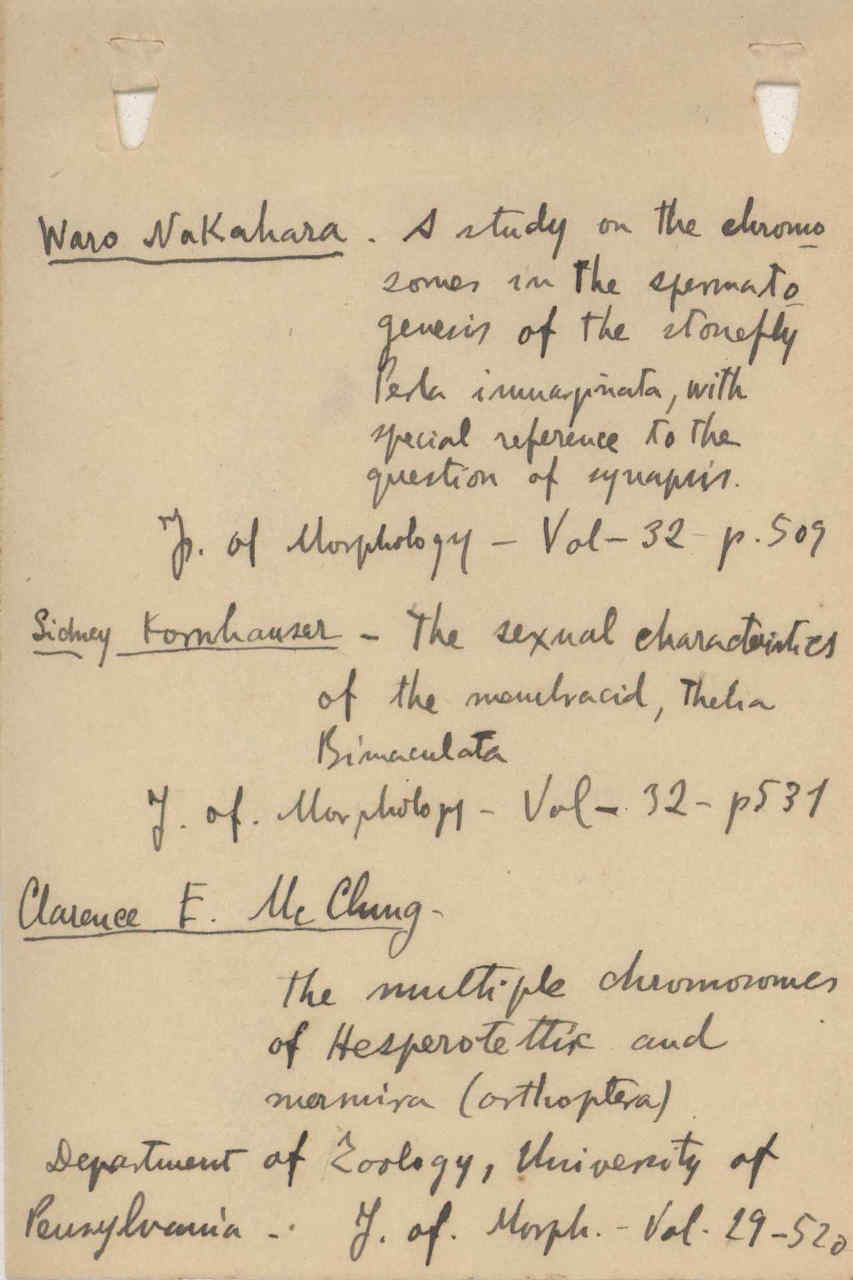 Waro Nakahara. A study on the chromo
somes in the spermato
genesis of the stonefly
Perla immarginata, with
special reference to the
question of synapsis.
J. of Morphology - Vol - 32 - p. 509
Sidney Kornhauser - The sexual characteristics
of the membracid, Thelia
Bimaculata
J. of. Morphology - Vol - 32 - p531
Clarence E. Mc Clung -
The multiple chromosomes
of Hesperotettix and
mermira (orthoptera)
Department of Zoology, University of
Pensylvania - . J. of. Morph. - Vol. 29 - 520